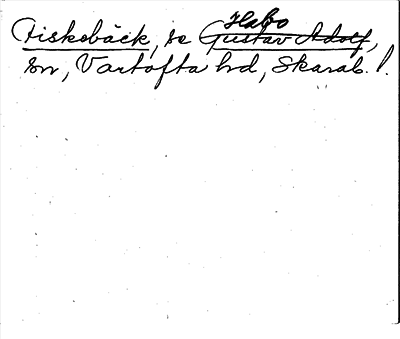 Habo
Fiskebäck, se Gustav Adolf,
sn, Vartofta hd, Skarab. l.